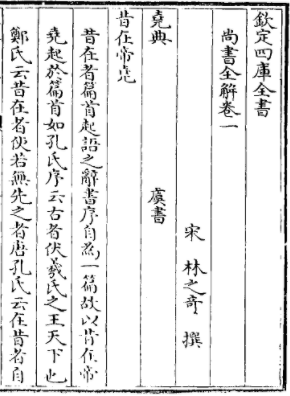 欽定四庫全書
尚書全解卷一
宋 林之奇 撰
堯典 虞書
昔在帝堯
昔在者篇首起語之辭書序自為一篇故以昔在帝
堯起於篇首如孔氏序云古者伏羲氏之王天下也
鄭氏云昔在者使若無先之者唐孔氏云在昔者自